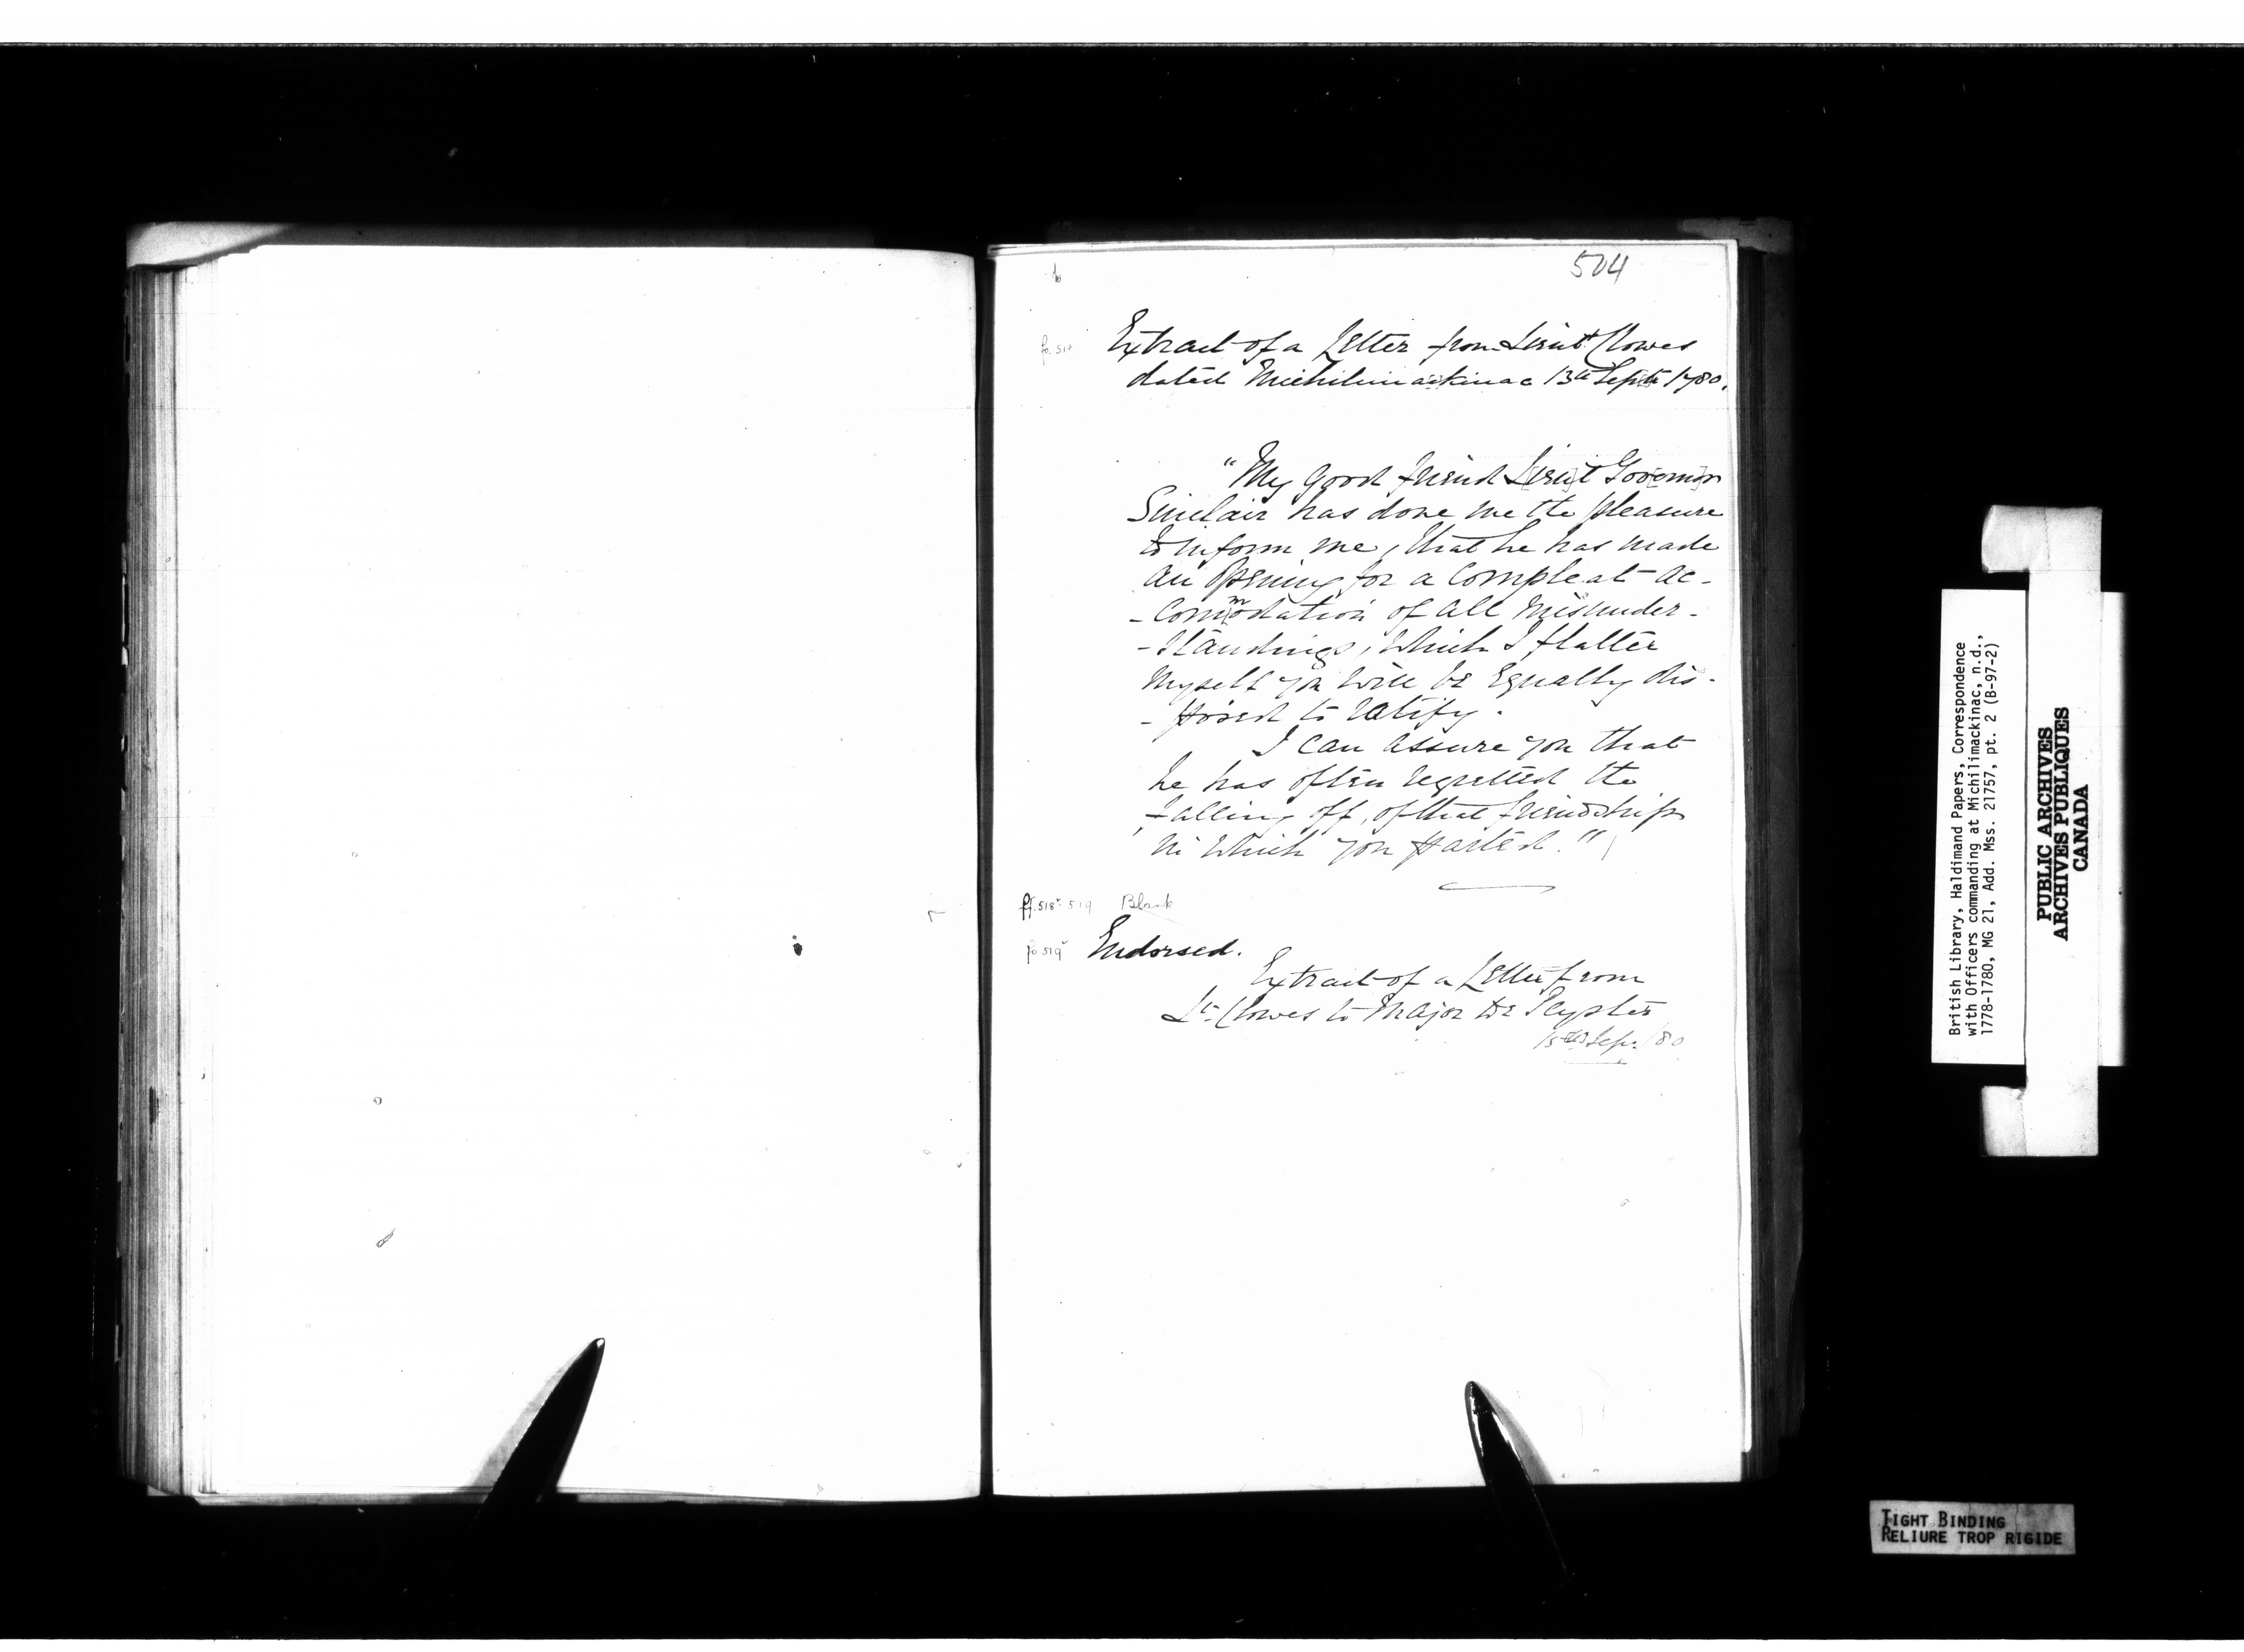 504
fo. 518
Extract of a Letter from Lieut Clowes
dated Michilimackinac 13th Septr 1780.
"My good friend L[ieu]t Gov[erno]r
Sinclair has done me the pleasure
to inform me, that he has made
an Opening for a compleat ac-
-commodation of all misunder-
-standings, which I flatter
myself you will be Equally dis-
-posed to ratify.
I can assure you that
he has often regretted the
falling off, of that friendship
in which you parted."
ff. 518v-519 Blank
fo 519v Endorsed.
Extract of a Letter from
Lt. Clowes to Major De Peyster
Sepr. /80
British Library, Haldimand Papers, Correspondence
with Officers commanding at Michilimackinac, n.d.,
1778-1780, MG 21, Add. Mss. 21757, pt. 2 (B-97-2)
PUBLIC ARCHIVES
ARCHIVES PUBLIQUES
CANADA
TIGHT BINDING
RELIURE TROP RIGIDE